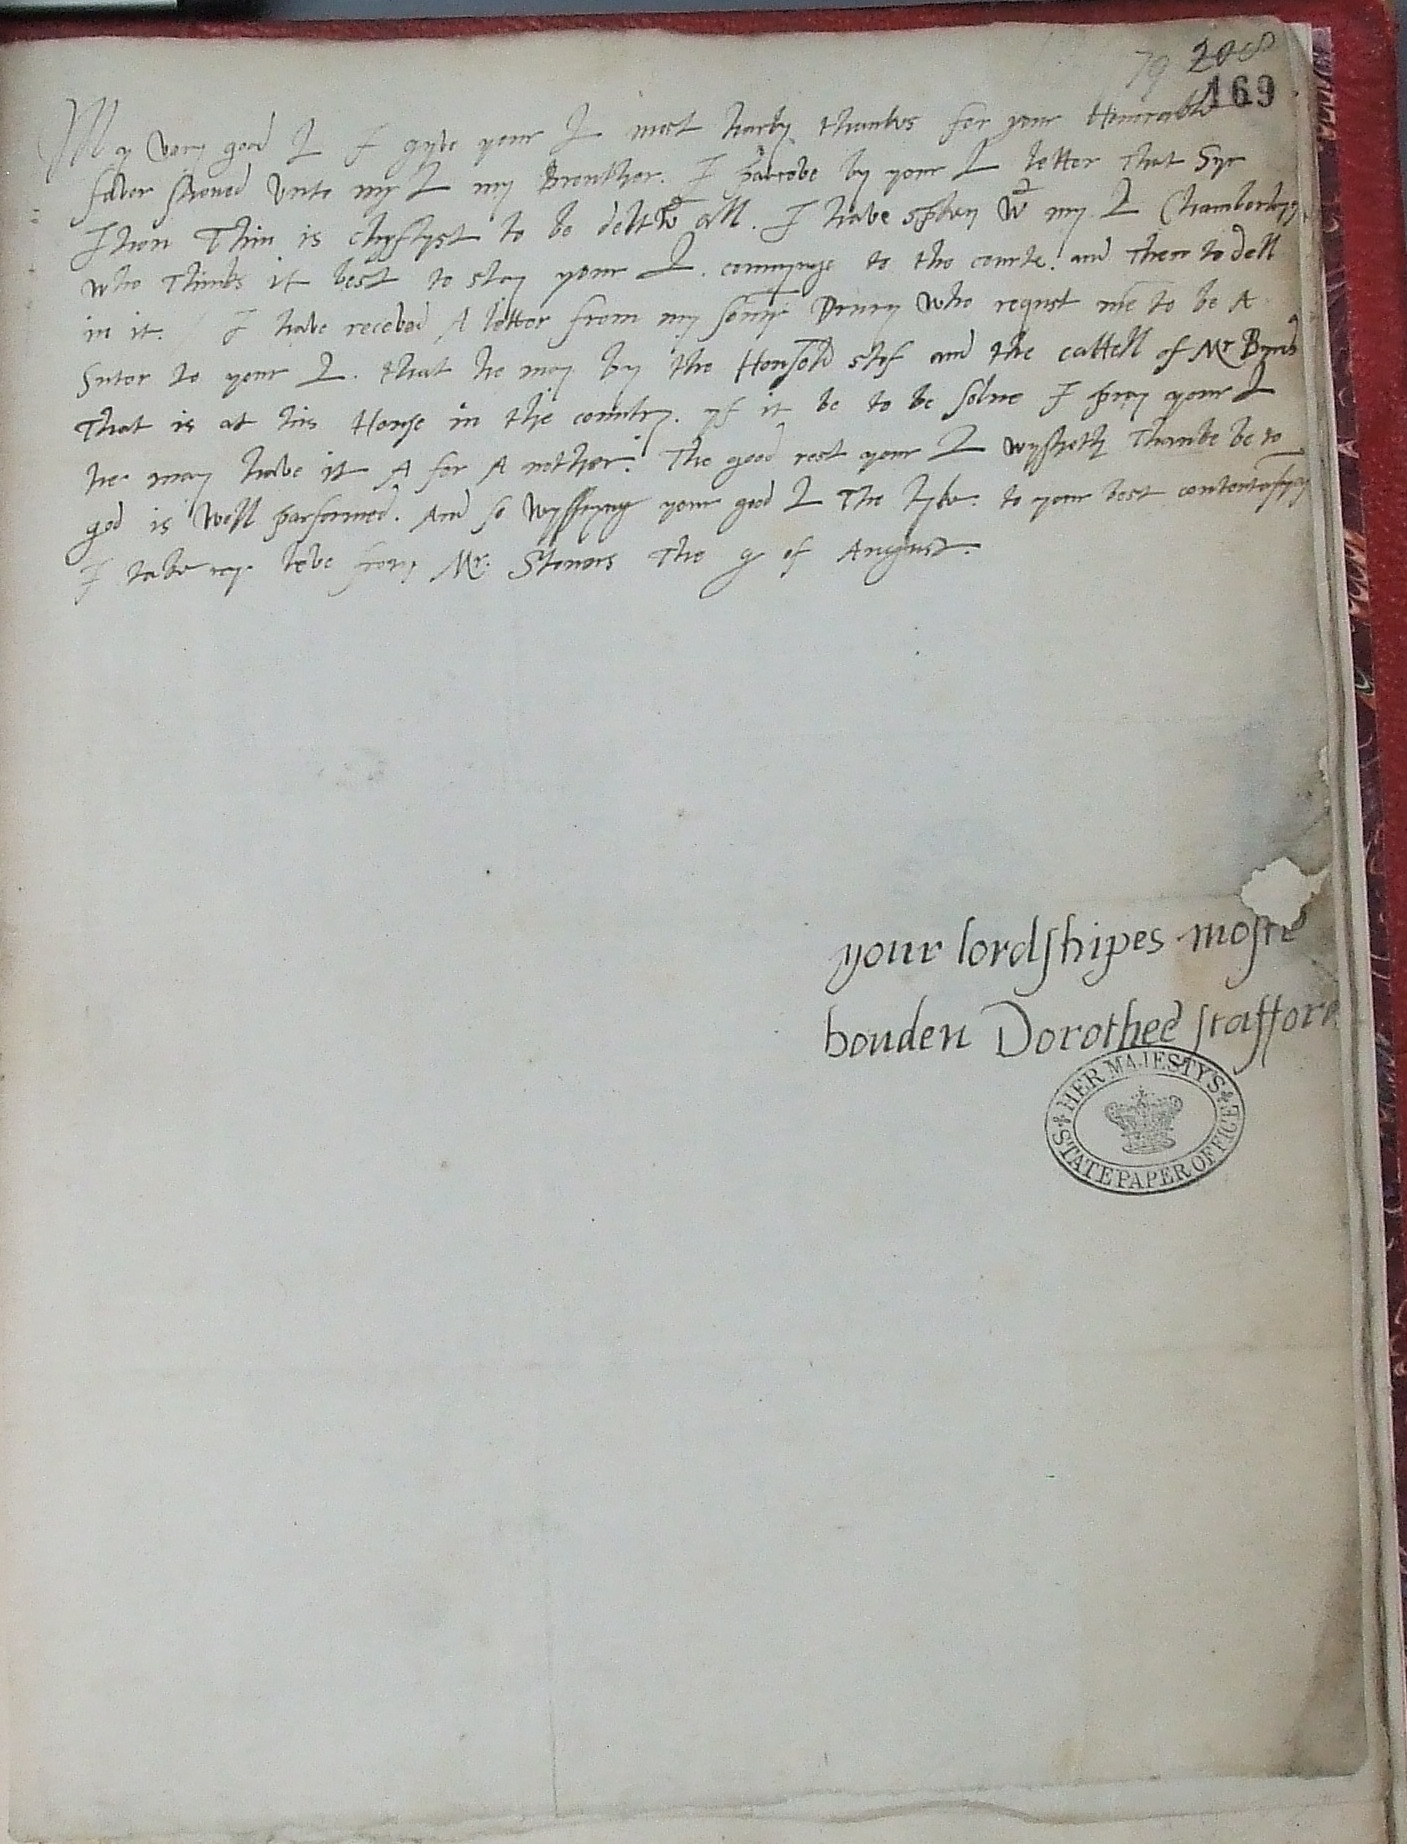 79 208
169
My very good L I gyve your L most harty thankes for your Honrable
faver shoued unto my L my Brouther. I parceve by your L letter that Syr
Ihon Thin is chyflyst to be delt wt all. I have spken wt my L Chamberleyn
who thinks it best to stay your L. comynge to the courte. and then to dell
in it. I have receved A letter from my sonne Drury who requst me to be A
Suter to your L. that he may by the Housold stof and the cattell of Mr
That is at his House in the countrey. yf it be to be solne I pray your L
he may have it A for A nother. The good rest your L wyssheth thanke be to
god is well parformed. And so wysshyng your good L the lyke. to your best contentasyon
I take my leve from Mr. Stonars the 9 of August.
your lordshipes moste
bouden Dorothee stafford
HER MAJESTY'S
STATE PAPER OFFICE